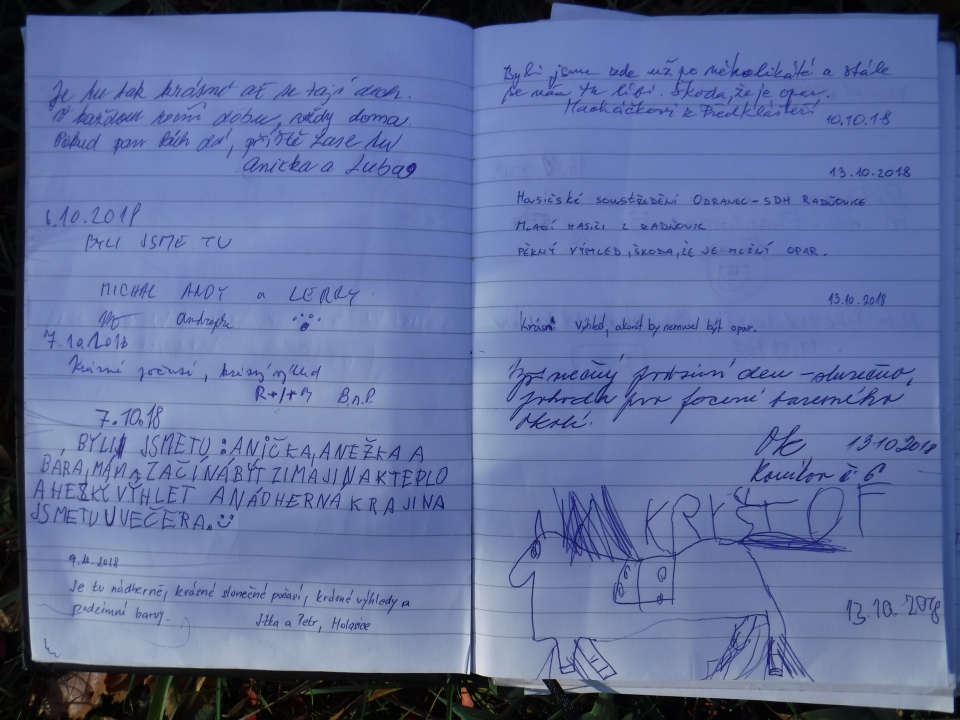 Je tu tak krásně až se tají dech.
V každou roční dobu, vždy doma.
Pokud pan Bůh dá, příště zase tu
Anička a Luba
6.10.2018
BYLI JSME TU
MICHAL ANDY a LERRY
7.10.2018
Krásné počasí, krásný výhled
B.n.P.
7.10.18
BYLI JSMETU: ANIČKA, ANEŽKA A
BÁRA, MÁMA, ZAČÍNÁ BÝT ZIMA JINAK TEPLO
A HEZKÝ VÝHLET A NÁDHERNÁ KRAJINA
JSMETU U VEČERA.
9.10.2018
Je tu nádherně, krásné slunečné počasí, krásné výhledy a
podzimní barvy.
Jitka a Petr, Holasice
Byli jsme zde už po několikáté a stále
se nám tu líbí. Škoda, že je opar.
Macháčkovi z Předklášteří
10.10.18
13.10.2018
HASIČSKÉ SOUSTŘEDĚNÍ ODRANEC - SDH RADŇOVICE
MLADÍ HASIČI Z RADŇOVIC
PĚKNÝ VÝHLED, ŠKODA, ŽE JE MLŽNÍ OPAR.
13.10.2018
Krásný výhled, akorát by nemusel být opar.
podzimní den - slunečno,
pro focení
okolí.
13.10.2018
č. 6
KRYŠTOF
13.10.2018